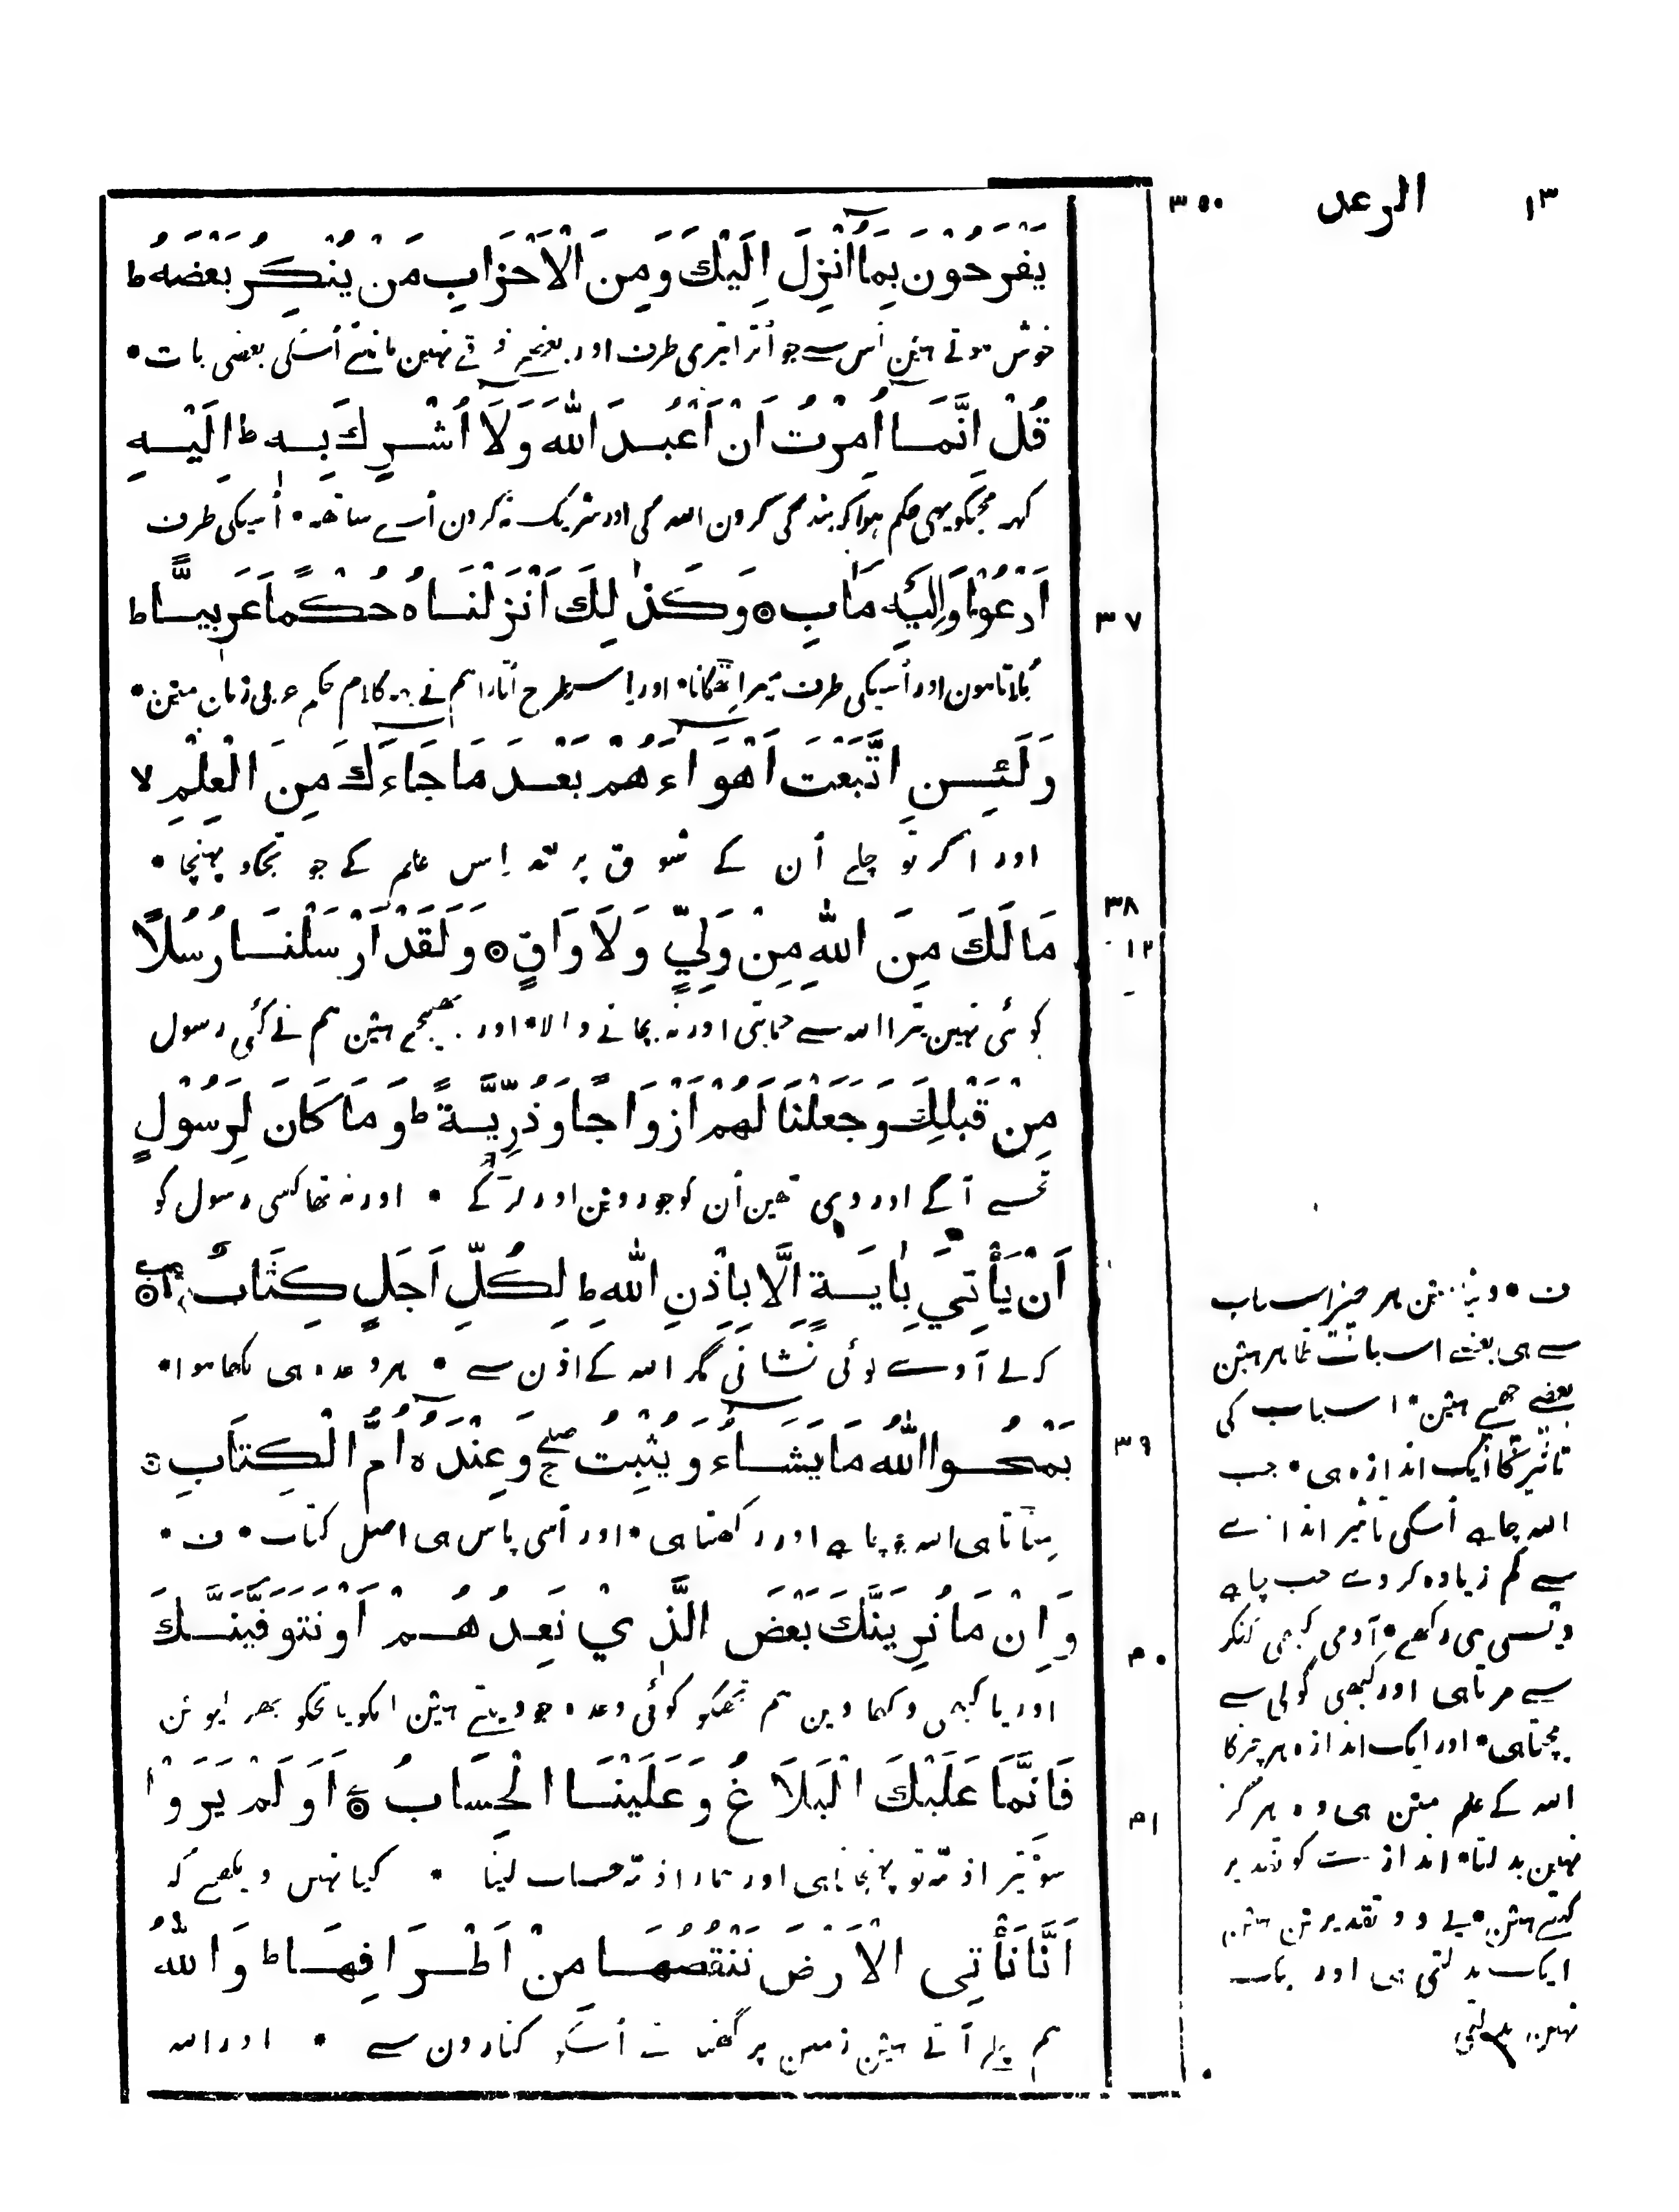 ١٣ الرعد ٣٥٠
يَفْرَحُوْنَ بِمَآ اُنْزِلَ اِلَيْكَ وَمِنَ الْاَحْزَابِ مَنْ يُنْكِرُ بَعْضَهُ ط
خوش ہوتے ہیں اُس سے جو اُترا تیری طرف اور بعضے فرقے نہین مانتے اُسکی بعضی بات •
قُلْ اِنَّمَآ اُمِرْتُ اَنْ اَعْبُدَ اللّٰهَ وَلَآ اُشْرِكَ بِهٖ ط اِلَيْهِ
کہہ مجھکو یہی حکم ہوا کہ بندگی کرون اللہ کی اور شریک نہ کرون اُسکے ساتھہ • اُسیکی طرف
اَدْعُوْا وَاِلَيْهِ مَاٰبِ ۞ وَكَذٰلِكَ اَنْزَلْنَاهُ حُكْمًا عَرَبِيًّا ط
٣٧
بُلاتا ہون اور اُسیکی طرف میرا ٹھکانا • اور اِسطرح اُتارا ہم نے یہہ کلام حکم عربی زبان مین •
وَلَئِنِ اتَّبَعْتَ اَهْوَآءَهُمْ بَعْدَ مَا جَآءَكَ مِنَ الْعِلْمِ لا
اور اگر تو چلے اُن کے شوق پر بعد اِس علم کے جو تجکو پہنچا •
٣٨
مَا لَكَ مِنَ اللّٰهِ مِنْ وَلِيٍّ وَلَا وَاقٍ ۞ وَلَقَدْ اَرْسَلْنَا رُسُلًا
١٢
کوئی نہین تیرا اللہ سے حمایتی اور نہ بچانے والا • اور بھیجے ہین ہم نے کئی رسول
مِنْ قَبْلِكَ وَجَعَلْنَا لَهُمْ اَزْوَاجًا وَذُرِّيَّةً ط وَمَا كَانَ لِرَسُوْلٍ
تجسے آگے اور دی تھین اُن کو جوروین اور لڑکے • اور نہ تھا کسی رسول کو
اَنْ يَأْتِيَ بِاٰيَةٍ اِلَّا بِاِذْنِ اللّٰهِ ط لِكُلِّ اَجَلٍ كِتَابٌ ۞
کہ لے آوے کوئی نشانی مگر اللہ کے اذن سے • ہر وعدہ ہی لکھا ہوا •
يَمْحُوا اللّٰهُ مَا يَشَآءُ وَيُثْبِتُ صلے ج وَعِنْدَهٗ اُمُّ الْكِتَابِ ۞
٣٩
مٹاتا ہی اللہ جو چاہے اور رکھتا ہی • اور اُسی پاس ہی اصل کتاب • ف •
وَاِنْ مَا نُرِيَنَّكَ بَعْضَ الَّذِيْ نَعِدُهُمْ اَوْ نَتَوَفَّيَنَّكَ
٤٠
اور یا کبھی دکھا دین ہم تجھکو کوئی وعدہ جو دیتے ہین انکو یا تجکو بھر لیوین
فَاِنَّمَا عَلَيْكَ الْبَلَاغُ وَعَلَيْنَا الْحِسَابُ ۞ اَوَلَمْ يَرَوْا
٤١
سو تیرا ذمہ تو پہنچانا ہی اور ہمارا ذمہ حساب لینا • کیا نہین دیکھے کہ
اَنَّا نَأْتِي الْاَرْضَ نَنْقُصُهَا مِنْ اَطْرَافِهَا ط وَاللّٰهُ
ہم چلے آتے ہین زمین پر گھٹاتے اُسکو کنارون سے • اور اللہ
ف • دنیا مین ہر چیز اسباب
سے ہی بعضے اسباب ظاہر ہین
بعضے چھپے ہین • اسباب کی
تاثیر کا ایک اندازہ ہی • جب
اللہ چاہے اُسکی تاثیر اندازے
سے کم زیادہ کر دے جب چاہے
ویسی ہی رکھے • آدمی کبھی کنکر
سے مرتا ہی اور کبھی گولی سے
بچتا ہی • اور ایک اندازہ ہر چیز کا
اللہ کے علم مین ہی وہ ہرگز
نہین بدلتا • اندازے کو تقدیر
کہتے ہین • یے دو تقدیرین ہین
ایک بدلتی ہی اور ایک
نہین بدلتی